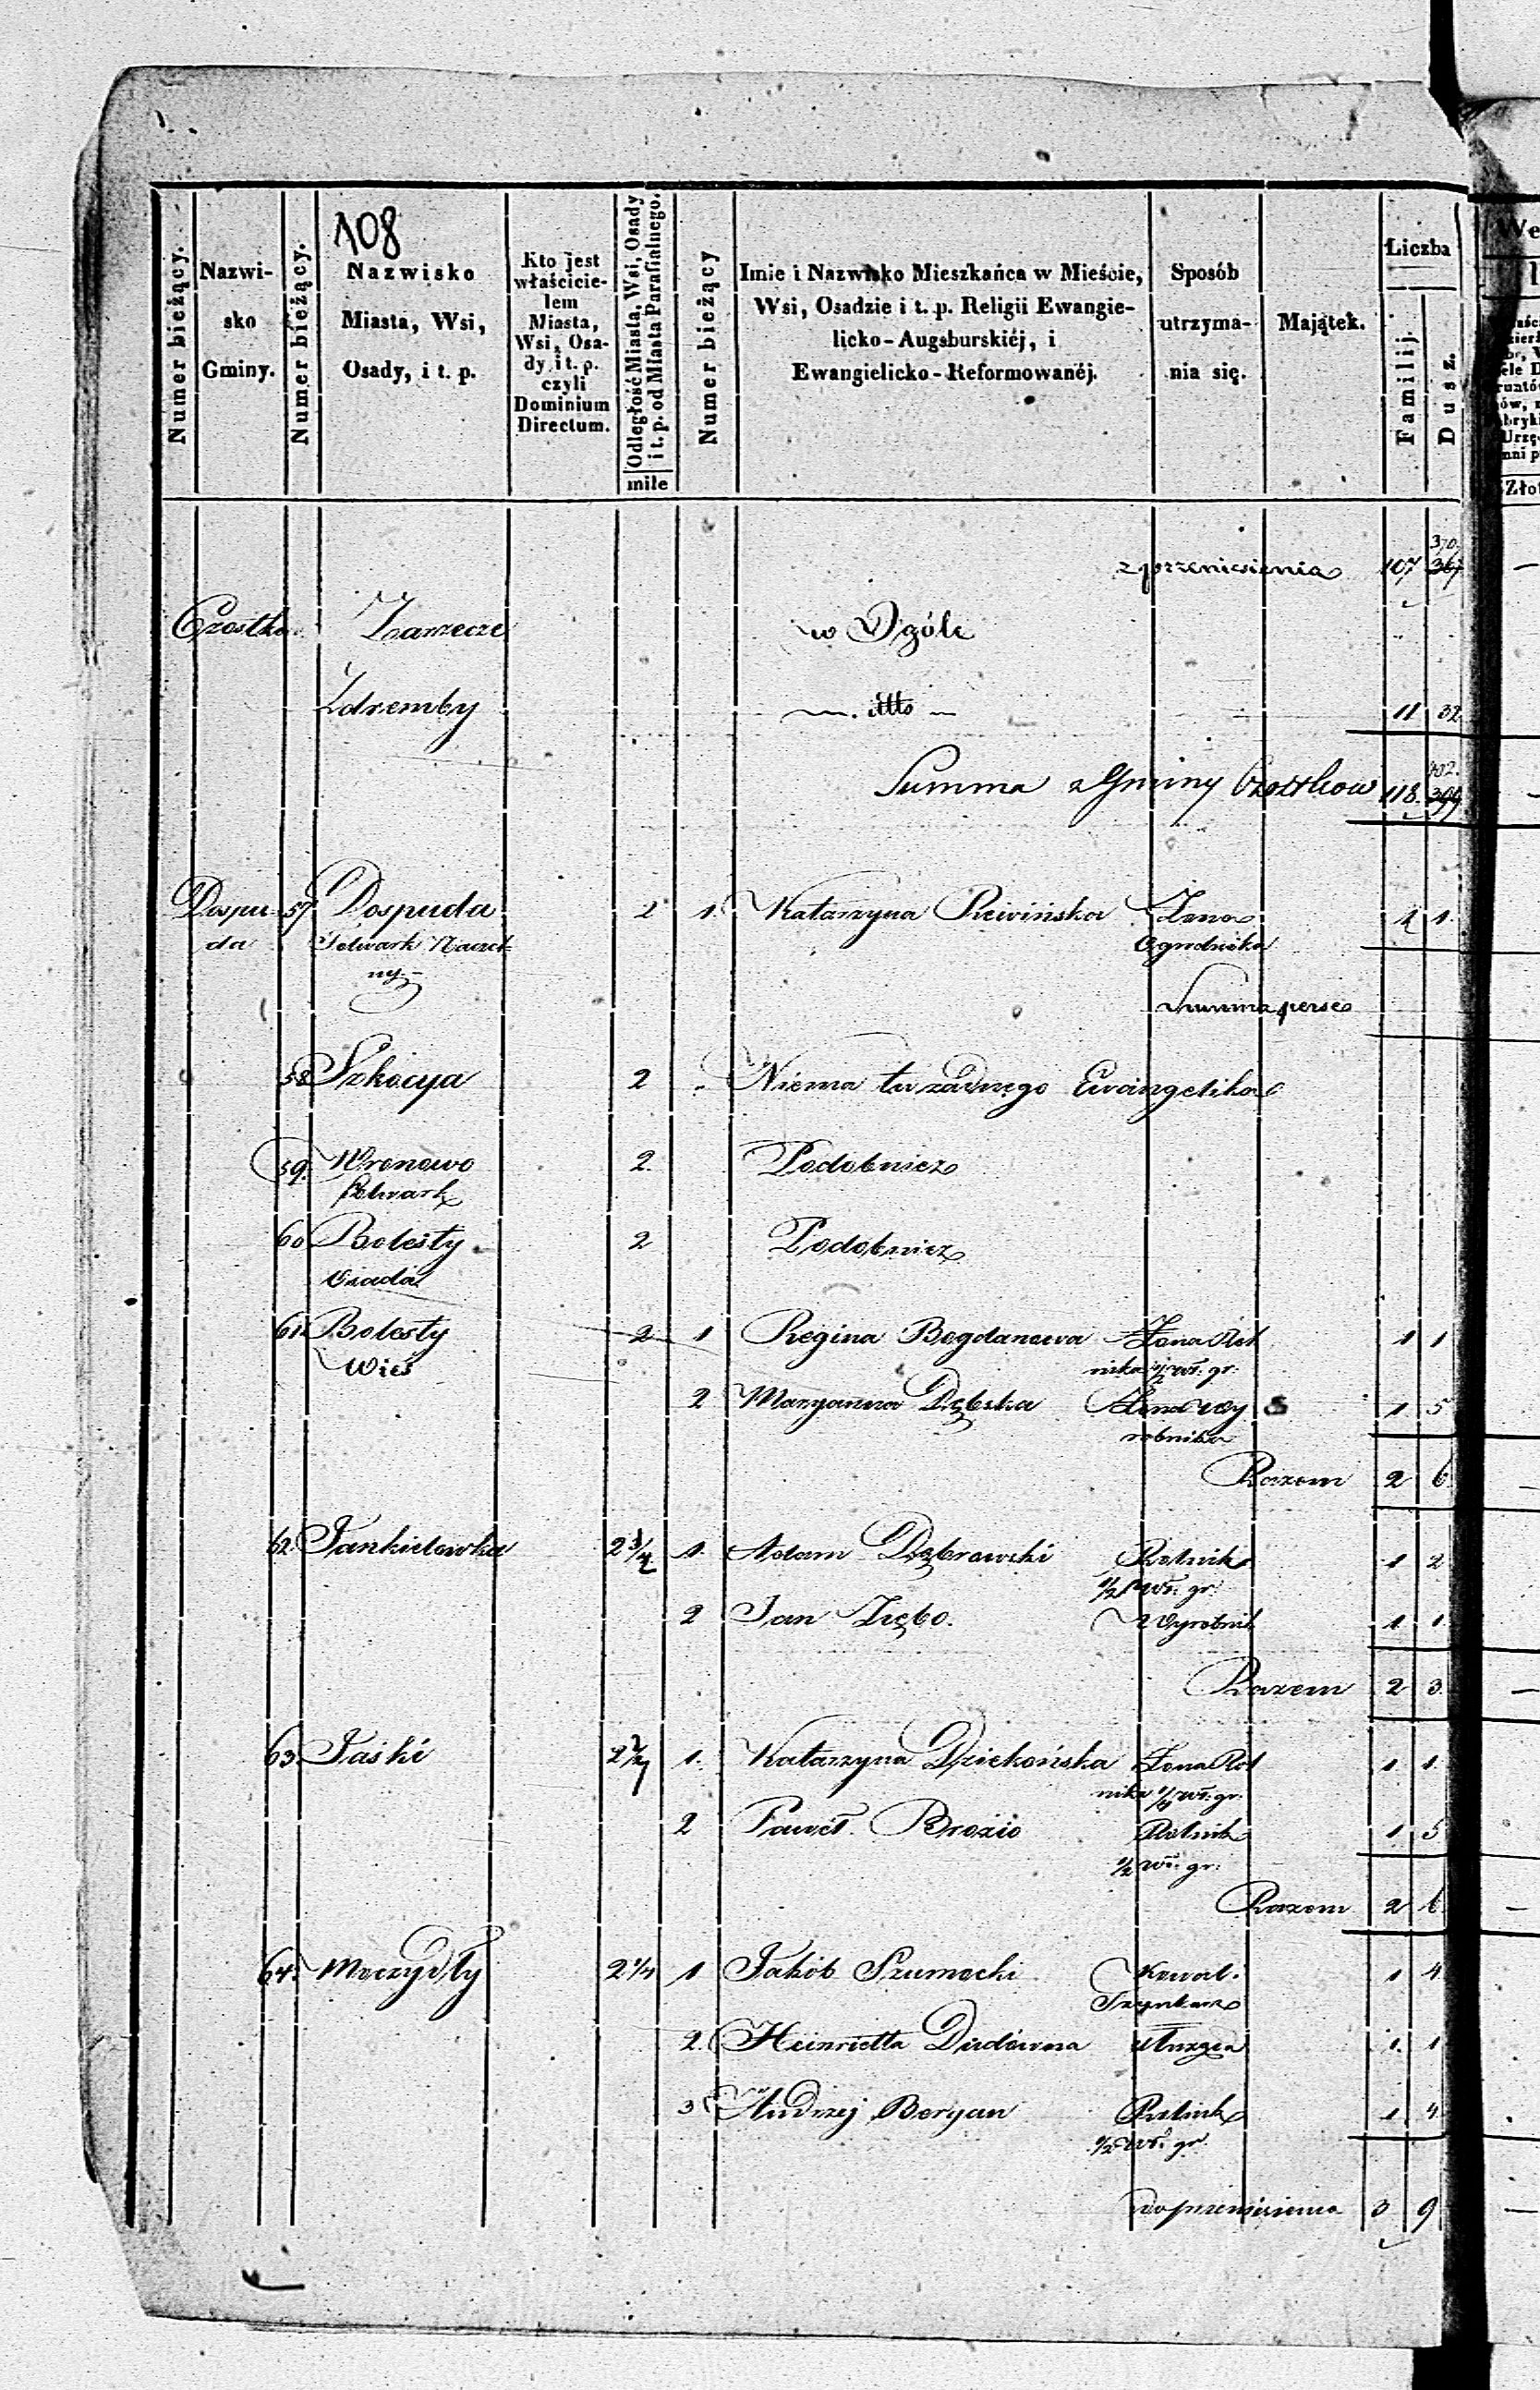 108
Numer bieżący.
Nazwi-
sko
Gminy.
Numer bieżący.
Nazwisko
Miasta, Wsi,
Osady, i t. p.
Kto jest
właścicie-
lem
Miasta,
Wsi, Osa-
dy i t. p.
czyli
Dominium
Directum.
Odległość Miasta, Wsi, Osady
i t. p. od Miasta Parafialnego.
mile
Numer bieżący
Imie i Nazwisko Mieszkańca w Mieście,
Wsi, Osadzie i t. p. Religii Ewangie-
licko-Augsburskiéj, i
Ewangielicko-Reformowanéj.
Sposób
utrzyma-
nia się.
Majątek.
Liczba
Familij.
Dusz.
370.
z przeniesienia 107 367
Czostko Zarzecze w Ogóle
Zdremby ditto 11 32
402.
Summa z Gminy Czostkow 118. 399
Dospu- 57 Dospuda 2 1. Katarzyna Żona 1 1.
da Folwark Ogrodnika
ny
Summa perse
58 Szkocya 2 Niema tu żadnego Ewangelika
59. Wronowo 2. Podobnież
folwark
60 Bolesty 2 Podobnież
Osada
61. Bolesty 2 1 Regina Bogdanowa Żona Rol 1 1
Wieś nika 1/2 wł. gr.
2 Maryanna Dębska Żona Wy 1 5
robnika
Razem 2 6
62. Jankielowka 2 3/4 1. Adam Dąbrowski Rolnik 1 2
1/2 wł. gr.
2 Jan Zięba. Wyrobnik 1. 1.
Razem 2 3.
63. Jaśki 2 1. Katarzyna Dziekońska Żona Rol 1 1.
nika 1/4 wł. gr.
2 Paweł Brozio Rolnik 1 5
1/2 wł. gr.
Razem 2 6
64. Moczydły 2 1/4 1 Jakób Szumocki Kowal. 1 4
Szynkarz
2. Heinrietta Dudówna 1. 1
3 Andrzej Beryan Rolnik 1. 4
1/2 wł. gr.
do przeniesienia 3 9